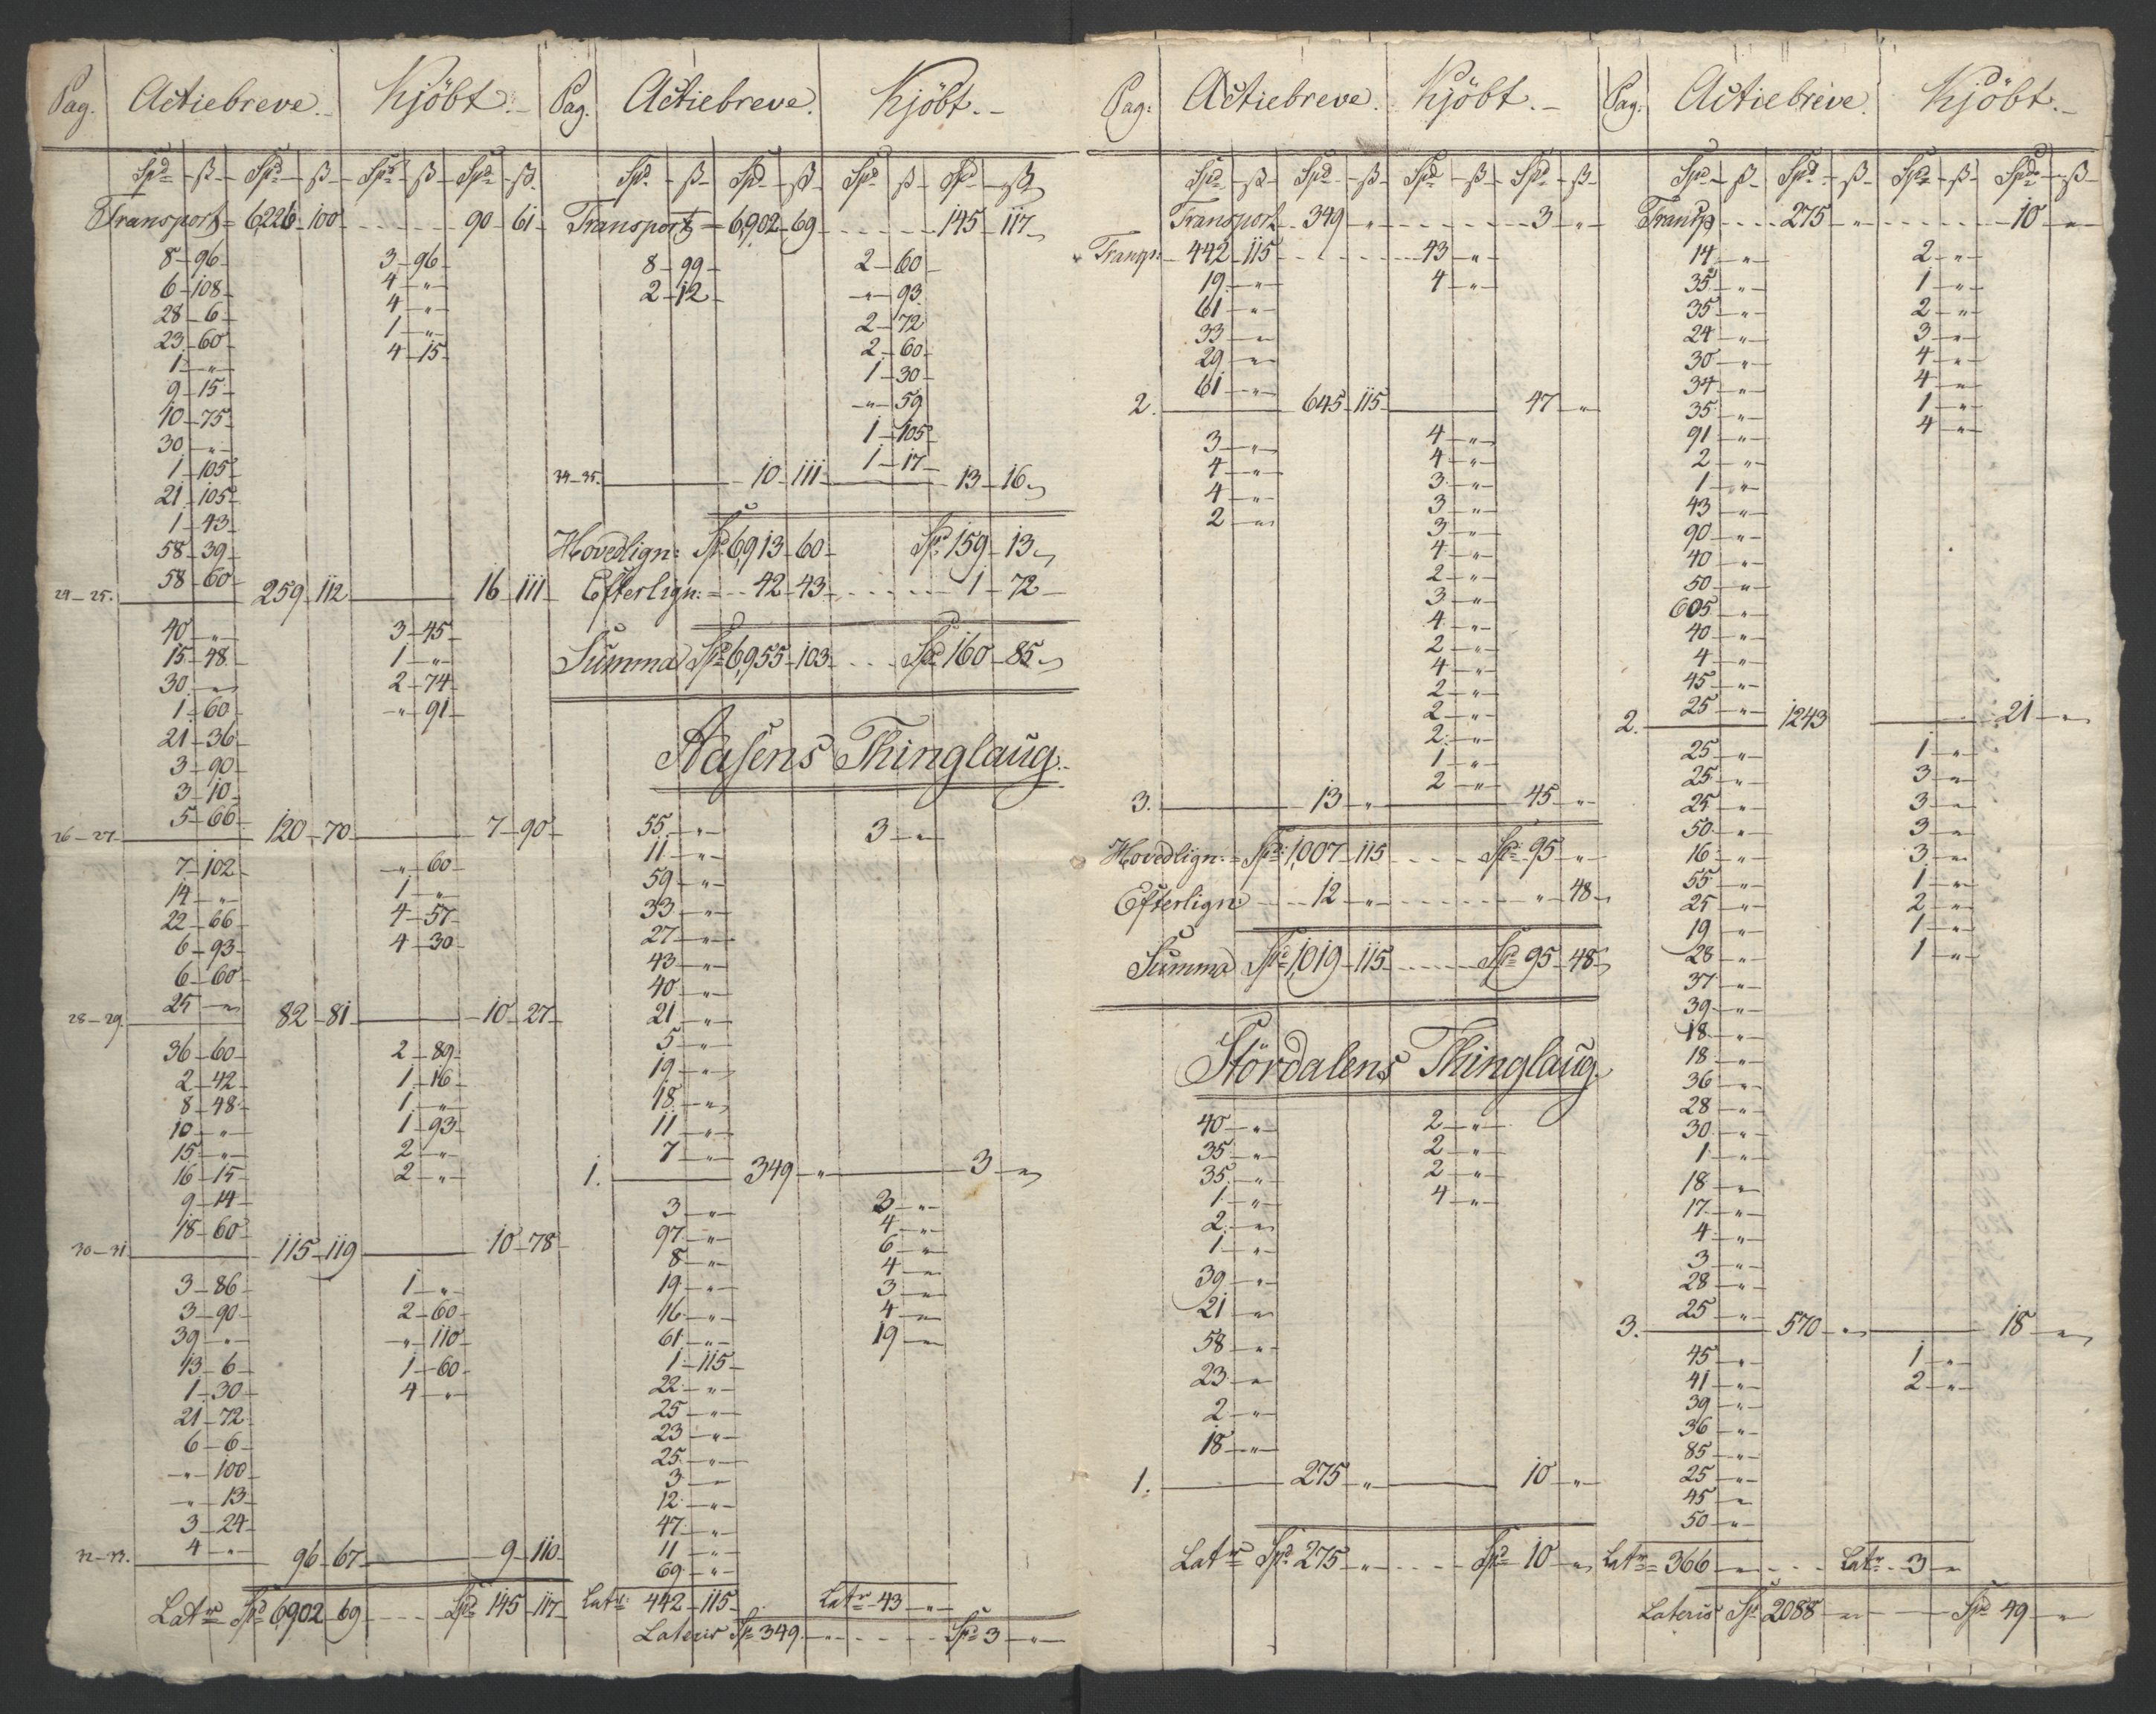 Pag. Actiebreve. Kjöbt.
Spd ß Spd ß Spd ß Spd ß
Transport = 6226 100 . . . . 90 61
8 96 3 96
6 108 4 "
28 6 4 "
23 60 1 "
1 " 4 15
9 15
10 75
30 "
1 105
21 105
1 43
58 39
58 60
24-25. 259 112 16 111
40 " 3 45
15 48 1 "
30 " 2 74
1 60 " 91
21 36
3 90
3 10
5 66
26-27 120 70 7 90
7 102 " 60
14 " 1 "
22 66 4 57
6 93 4 30
6 60
25 "
28-29. 82 81 10 27
36 60 2 89
2 42 1 16
8 48 1 "
10 " 1 93
15 " 2 "
16 15 2 "
9 14
18 60
30-31. 115 119 10 78
3 86 1 "
3 90 2 60
39 " " 110
13 6 1 60
1 30 4 "
21 72
6 6
" 100
" 13
3 24
4 "
32-33. 96 67 9 110
Latr Spd 6902 69 . . . Spd 145 117
Pag. Actiebreve. Kjöbt.
Spd. ß Spd ß Spd ß Spd ß
Transport = 6,902 69 . . . . 145 117
8 99 2 60
2 12 " 93
2 72
2 60
1 30
" 59
1 105
1 17
34-35. 10 111 13 16
Hovedlign: Spd 6,913 60 Spd 159 13
Efterlign: = 42 43 . . . . . 1 72
Summa Spd 6,955 103 . . . Spd 160 85
Aasens Thinglaug.
55 " 3 "
11 "
59 "
33 "
27 "
43 "
40 "
21 "
5 "
19 "
18 "
11 "
7 "
1. 349 " 3 "
3 " 3 "
97 " 4 "
8 " 6 "
19 " 4 "
16 " 3 "
61 " 4 "
1 115 19 "
22 "
25 "
23 "
25 "
3 "
12 "
47 "
11 "
69 "
Latr: 442 115 Latr 43 "
Lateris Spd 349 " . . . . Spd 3 "
Pag: Actiebreve. Kjöbt.
Spd ß Spd ß Spd ß Spd ß
Transport . . 349 " . . . . . . 3 "
Transp: 442 115 . . . . 43 "
19 " 4 "
61 "
33 "
29 "
61 "
2. 645 115 47 "
3 " 4 "
4 " 4 "
4 " 3 "
2 " 3 "
3 "
4 "
2 "
3 "
4 "
2 "
4 "
2 "
2 "
2 "
1 "
2 "
3. 13 " 45 "
Hovedlign: = Spd: 1,007 115 . . . . Spd 95 "
Efterlign: . . . 12 " . . . . . . " 48
Summa Spd 1,019 115 . . . . Spd 95 48
Stördalens Thinglaug.
40 " 2 "
35 " 2 "
35 " 2 "
1 " 4 "
2 "
1 "
39 "
21 "
58 "
23 "
2 "
18 "
1. 275 " 10 "
Latr Spd 275 " . . . . Spd 10 "
Pag: Actiebreve. Kjöbt.
Spd ß Spd ß Spd ß Spd ß
Transp . . . . 275 " . . . . . . 10 "
14 " 2 "
35 " 1 "
35 " 2 "
24 " 3 "
30 " 4 "
34 " 4 "
35 " 1 "
91 " 4 "
2 "
1 "
43 "
90 "
40 "
50 "
605 "
40 "
4 "
45 "
25 "
2. 1243 21 "
25 " 1 "
25 " 3 "
25 " 3 "
50 " 3 "
16 " 3 "
55 " 1 "
25 " 2 "
19 " 1 "
28 " 1 "
37 "
39 "
18 "
18 "
36 "
28 "
30 "
1 "
18 "
17 "
4 "
3 "
28 "
25 "
3. 570 " 18 "
45 " 1 "
41 " 2 "
39 "
36 "
85 "
25 "
45 "
50 "
Latr = 366 " . . . Latr . 3 "
Lateris Spd 2088 " Spd 49 "